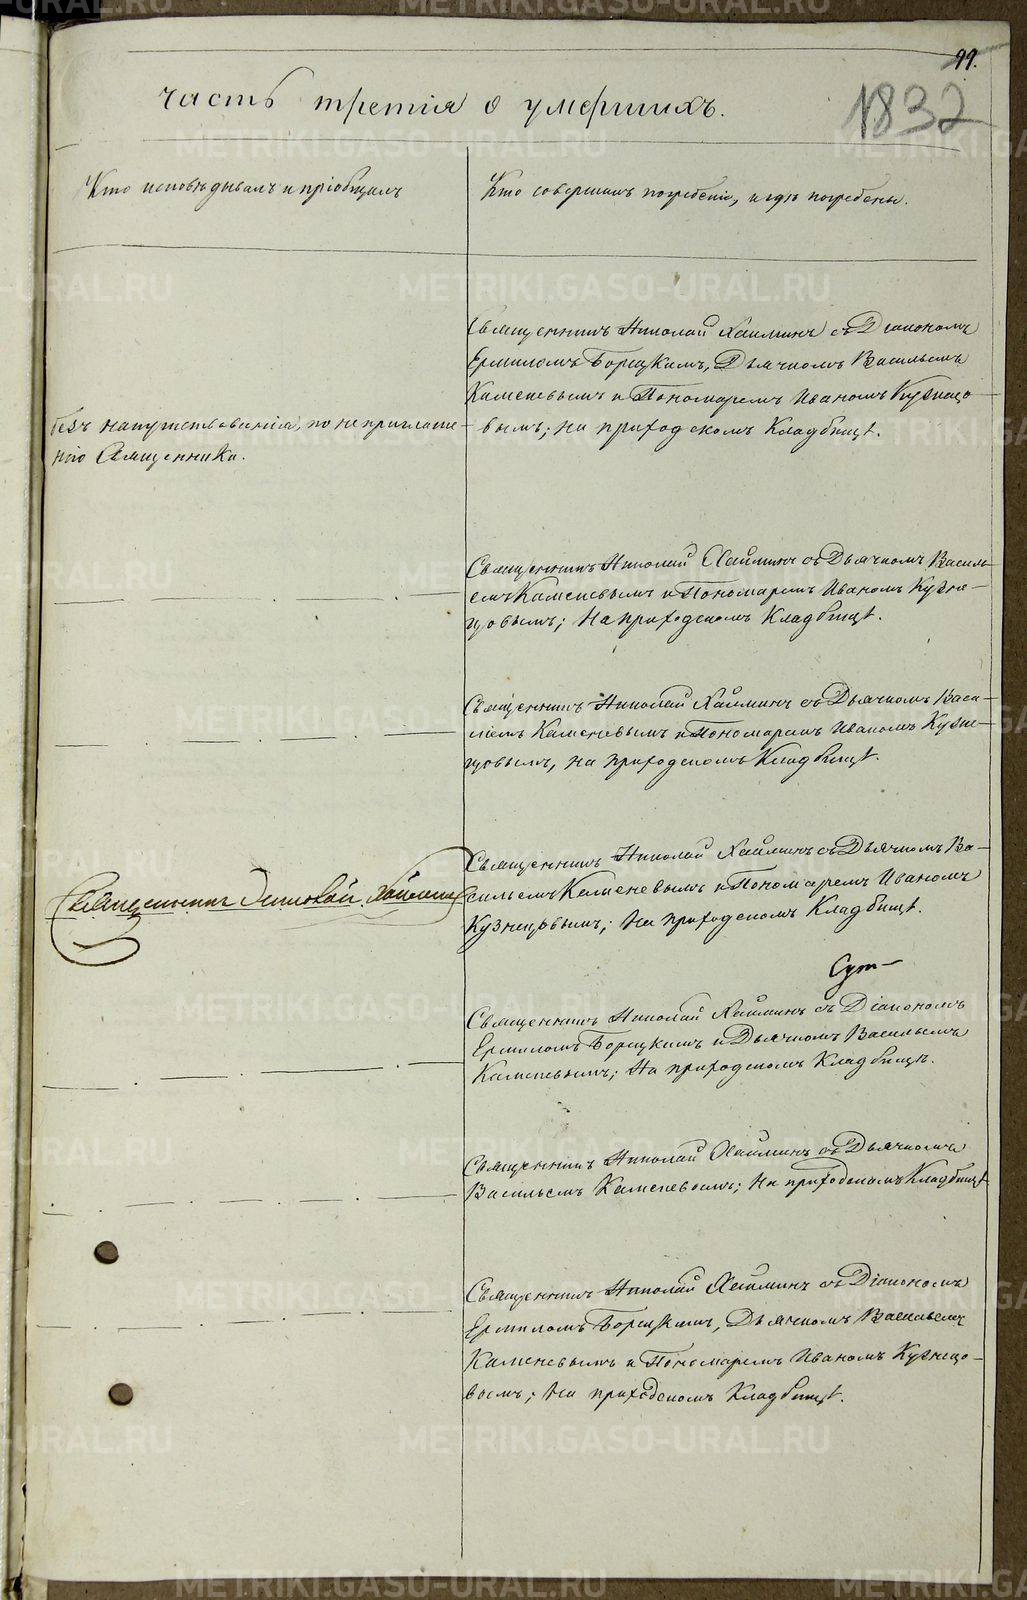 99.
1832
часть третія о умершихъ.
Кто исповѣдывалъ и пріобщалъ
Кто совершалъ погребеніе, и гдѣ погребены.
Священникъ Николай Хайминъ съ Діакономъ
Ермиломъ Борецкимъ, Дьячкомъ Васильемъ
Каменевымъ и Пономаремъ Иваномъ Кузнецо-
вымъ; на приходскомъ Кладбищѣ.
безъ напутствованія, по не приглаше-
нію Священника.
Священникъ Николай Хайминъ съ Дьячкомъ Василь-
емъ Каменевымъ и Пономаремъ Иваномъ Кузне-
цовымъ; На приходскомъ Кладбищѣ.
Священникъ Николай Хайминъ съ Дьячкомъ Васи-
ліемъ Каменевымъ и Пономаремъ Иваномъ Кузне-
цовымъ, на приходскомъ Кладбищѣ.
Священникъ Николай Хайминъ съ Дьячкомъ Ва-
сильемъ Каменевымъ и Пономаремъ Иваномъ
Кузнецовымъ; На приходскомъ Кладбищѣ.
Священникъ Николай Хайминъ
Священникъ Николай Хайминъ съ Діакономъ
Ермиломъ Борецкимъ и Дьячкомъ Васильемъ
Каменевымъ; На приходскомъ Кладбищѣ.
Священникъ Николай Хайминъ съ Дьячкомъ
Васильемъ Каменевымъ; На приходскомъ Кладбищѣ
Священникъ Николай Хайминъ съ Діакономъ
Ермиломъ Борецкимъ, Дьячкомъ Васильемъ
Каменевымъ и Пономаремъ Иваномъ Кузнецо-
вымъ; На приходскомъ Кладбищѣ.
METRIKI.GASO-URAL.RU